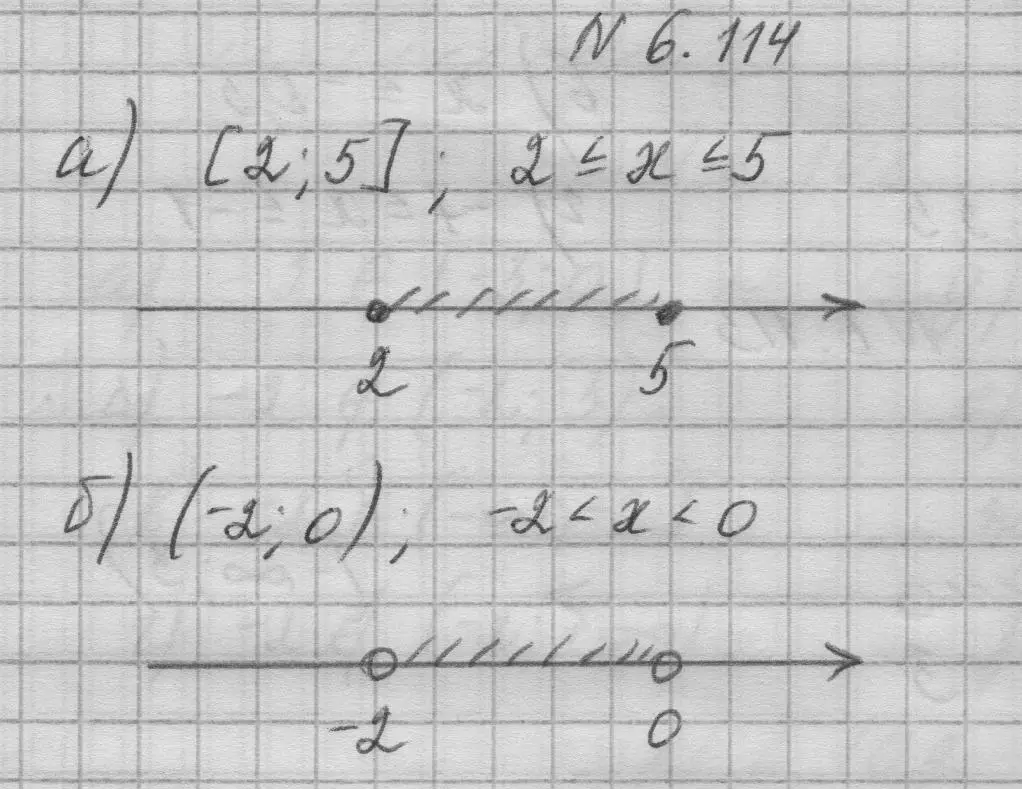 N 6.114
а) [2; 5]; 2 ≤ x ≤ 5
2 5
б) (-2; 0); -2 < x < 0
-2 0